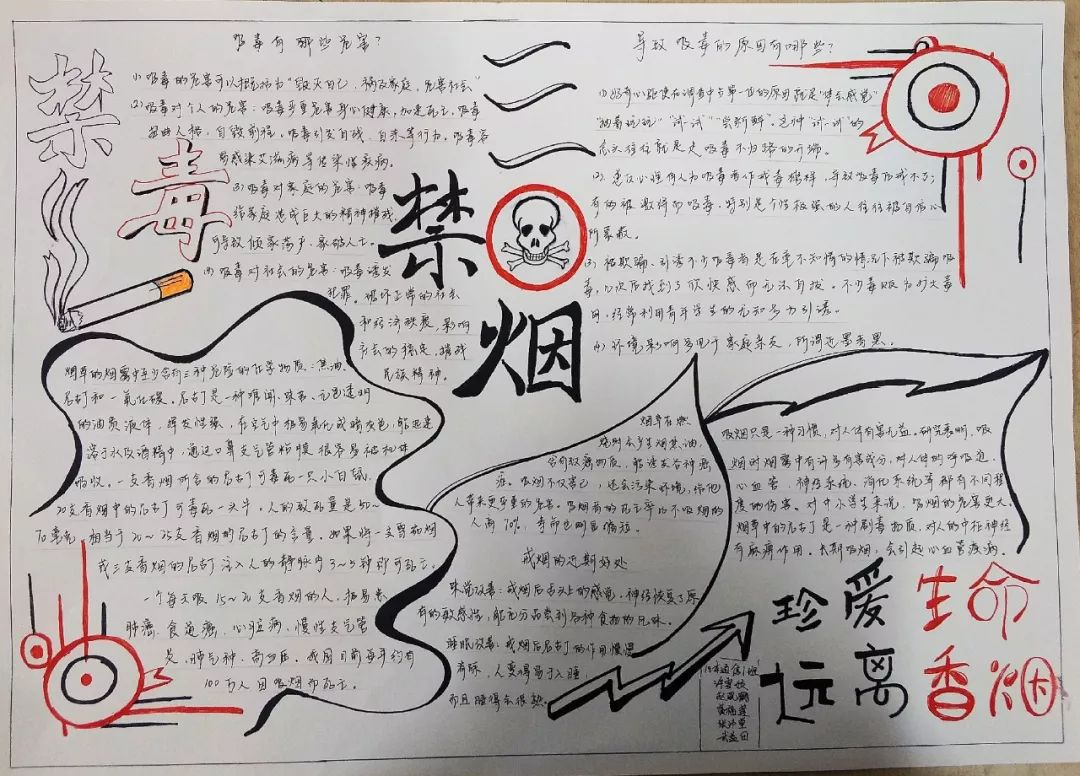 禁
毒
吸毒有哪些危害?
(1)吸毒的危害可以概括为"毁灭自己,祸及家庭,危害社会"
(2)吸毒对个人的危害:吸毒严重危害身心健康,加速死亡,吸毒
扭曲人格,自毁前程,吸毒引发自残、自杀等行为。吸毒容
易感染艾滋病等传染性疾病。
(3)吸毒对家庭的危害:吸毒
给家庭造成巨大的精神摧残,
可导致倾家荡产、家破人亡。
(4)吸毒对社会的危害:吸毒诱发
犯罪。破坏正常的社会
和经济发展,影响
社会的稳定,摧残
民族精神。
导致吸毒的原因有哪些?
(1)好奇心驱使在调查中占第一位的原因就是"找感觉"
"抽着玩玩""试一试""尝新鲜",这种"试一试"的
念头往往就是走吸毒不归路的开端。
有的被激将而吸毒,特别是个性极强的人往往被自信心
所蒙蔽。
(3)被欺骗、引诱不少吸毒者是在毫不知情的情况下被欺骗吸
毒,几次后找到了欣快感而无法自拔。不少毒贩为扩大毒
网,经常利用青年学生的无知多方引诱。
(4)环境影响多见于家庭亲友,所谓近墨者黑。
禁
烟
烟草的烟雾中至少含有三种危险的化学物质:焦油,
尼古丁和一氧化碳。尼古丁是一种难闻、味苦、无色透明
的油质液体,挥发性强,在空气中极易氧化成暗灰色,能迅速
溶于水及酒精中,通过口鼻支气管粘膜很容易被机体
吸收。一支香烟所含的尼古丁可毒死一只小白鼠,
20支香烟中的尼古丁可毒死一头牛。人的致死量是50~
70毫克,相当于20~25支香烟的尼古丁的含量。如果将一支雪茄烟
或三支香烟的尼古丁注入人的静脉内3~5钟即可死亡。
一个每天吸15~20支香烟的人,极易患
肺癌、食道癌、心脏病、慢性支气管
炎、肺气种、高血压。我国目前每年约有
100万人因吸烟而死亡。
烟草在燃
烧时会产生烟焦油,
含有致癌物质,能诱发各种癌
症。吸烟不仅害己,还会污染环境,给他
人带来更严重的危害。吸烟者的死亡率比不吸烟的
人高70%,寿命也明显缩短。
戒烟的近期好处
味觉改善:戒烟后舌头上的感觉、神经恢复了原
有的敏感性,能充分品尝到各种食物的风味。
睡眠改善:戒烟后尼古丁的作用慢慢
消除,人变得易于入睡,
而且睡得会很熟
吸烟只是一种习惯,对人体有害无益。研究表明,吸
烟时烟雾中有许多有害成分,对人体的呼吸道、
心血管、神经系统、消化系统等都有不同程
度的伤害。对中小学生来说,吸烟的危害更大。
烟草中的尼古丁是一种剧毒物质,对人的中枢神经
有麻痹作用。长期吸烟,会引起心血管疾病。
珍爱生命
远离香烟